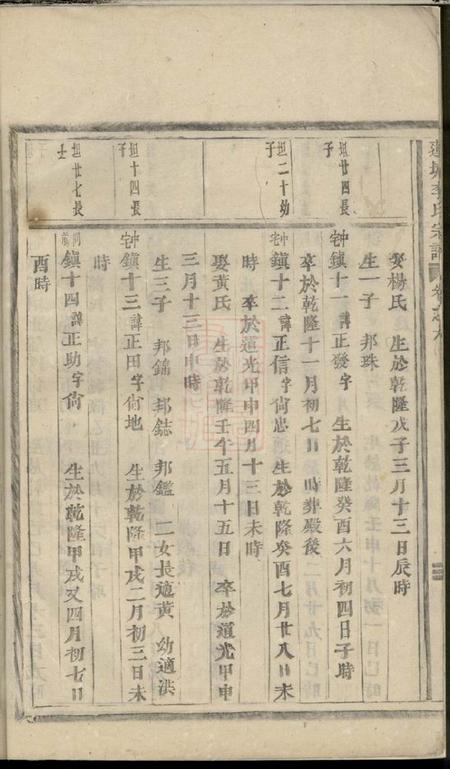 李氏宗譜
娶楊氏 生於乾隆戊子三月十三日辰時
生一子 邦珠
坦廿四長子
中宅鎮十一諱正發字 生於乾隆癸酉六月初四日子時
卒於乾隆十一月初七日 時葬殿後
坦二十幼子
中宅鎮十二諱正信字尙忠 生於乾隆癸酉七月廿八日未
時 卒於道光甲申四月十三日未時
娶黃氏 生於乾隆壬午五月十五日 卒於道光甲申
三月十三日申時
生三子 邦錦 邦鋕 邦鑑 二女長適黃 幼適洪
坦十四長子
中宅鎮十三諱正田字尙地 生於乾隆甲戌二月初三日未
時
坦廿七長
鎮十四諱正助字尙 生於乾隆甲戌又四月初七日
酉時